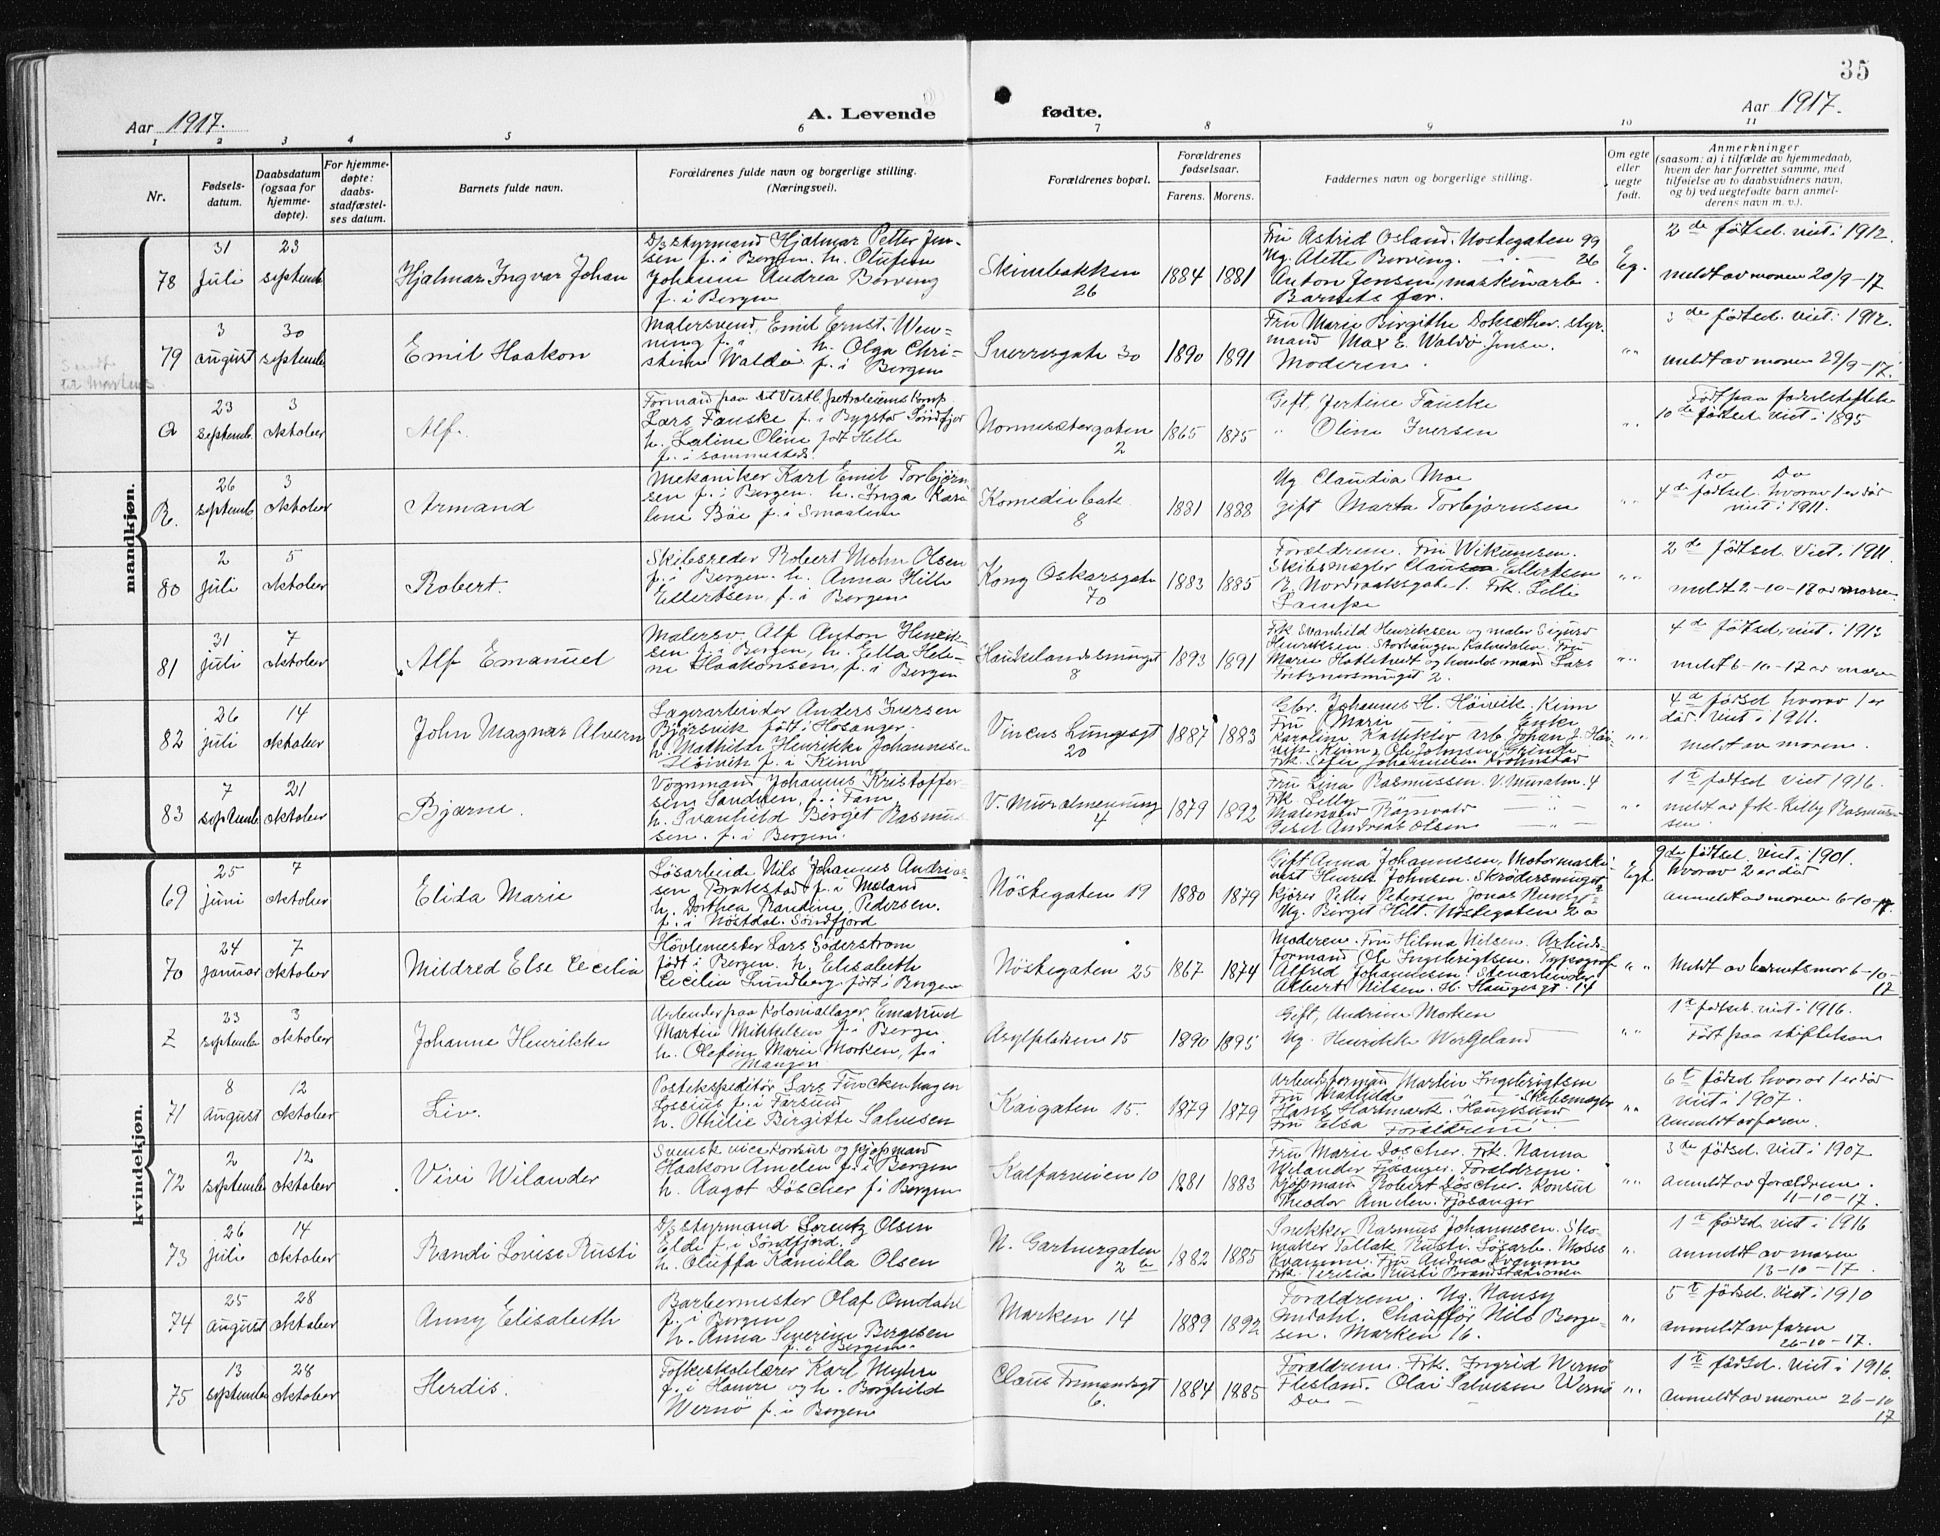 35
Aar 1917.
A. Levende fødte.
Aar 1917.
1 2 3 4 5 6 7 8 9 10 11
Nr.
Fødsels-
datum.
Daabsdatum
(ogsaa for
hjemme-
døpte).
For hjemme-
døpte:
daabs-
stadfæstel-
ses datum.
Barnets fulde navn.
Forældrenes fulde navn og borgerlige stilling.
(Næringsvei).
Forældrenes bopæl.
Forældrenes
fødselsaar.
Farens. Morens.
Faddernes navn og borgerlige stilling.
Om egte
eller
uegte
født.
Anmerkninger
(saasom: a) i tilfælde av hjemmedaab,
hvem der har forrettet samme, med
tilføielse av to daabsvidners navn,
og b) ved uegtefødte barn anmel-
derens navn m. v.).
mandkjøn.
78
31
juli
23
septemb
Hjalmar Ingvar Johan
D/s styrmand Hjalmar Petter Jen-
sen f. i Bergen. h. Olufine
Johanne Andrea Berving
f. i Bergen
Skivebakken
26
1884 1881
Fru Astrid Osland. Nostegaten 99
Ug. Alette Berving. 26
Anton Jensen, maskinarb.
Barnets far.
Eg.
2de fødsel. viet i 1912.
meldt av moren 20/9-17
79
3
august
30
septemb
Emil Haakon
Malersvend, Emil Ernst. Wen-
ning f. i h. Olga Chri-
stine Waldø f. i Bergen
Sverresgate 30
1890 1891
Fru Marie Birgithe Doksæther. styr-
mand Max E. Waldø Jensen.
Moderen.
3de fødsel. viet i 1912.
meldt av moren 29/9-17.
Q
23
septemb.
3
oktober
Alf.
Formand paa det Vestl. petroleumskomp.
Lars Fauske f. i Bygstad Søndfjor
h. Laline Oline født Helle
f. i sammesteds.
Normisætergaten
2
1865 1875
Gift, Jertine Fauske
" Olina Iversen
Født paa fødselstiftelse
10de fødsel viet i 1895
R.
26
septemb
3
oktober
Armand
Mekaniker Karl Emil Torbjørn
sen f. i Bergen. h. Inga Karo
line Bøe f. i Smaalene
Komediebak
8
1881 1888
Ug Claudia Moe
gift Marta Torbjørnsen
Do Do
4de fødsel. hvorav 1 er død
viet i 1911.
80
2
juli
5
oktober
Robert.
Skibsreder Robert Mohn Olsen
f. i Bergen. h. Anna Hille
Ellertsen, f. i Bergen
Kong Oskarsgate
70
1883 1885
Forældrene. Fru Wikumsen.
Skibsmægler Clausen Ellertsen
E. Nordraaksgate 1. Frk. Lilli
2de fødsel. Viet i 1911
meldt 2-10-18 av moren
81
31
juli
7
oktober
Alf Emanuel
Malersv. Alf Anton Henrik-
sen f. i Bergen, h. Ella Hele-
ne Haakonsen, f. i Bergen
Haukelandsmuget
8
1893 1891
Frk Svanhild Henriksen og maler Sigurd
Henriksen. Storhaugen Kalvedalen. Fru
Marie Hatletvedt og handelsmand Lars
Fritznersmuget 2.
4de fødsel, viet i 1913
meldt 6-10-17 av moren
82
26
juli
14
oktober
John Magnar Alvern
Lagerarbeider Anders Iversen
Bjørsvik født i Hosanger.
h. Mathilde Henrikke Johannesen
Høivik f. i Kinn
Vincens Lungesgt
20
1887 1883
Gbr. Johannes H. Høivik. Kinn
Fru Marie Enke
4de fødsel hvorav 1 er
død. viet i 1911.
meldt av moren.
83
7
septemb.
21
oktober
Bjarne.
Vognmand Johannes Kristoffer-
sen Sandven, f. i Fane
h. Svanhild Birget Rasmus-
sen. f. i Bergen.
V. Muralmenning
4
1879 1892
Fru Lina Rasmussen. V. Muralm. 4
Frk. Lilly
Malersvend Ragnvald
Gesel Andreas Olsen
1te fødsel viet 1916.
meldt av frk. Lilly Rasmus-
sen.
kvindekjøn.
69
25
juni
7
oktober
Elida Marie
Løsarbeide Nils Johannes Andrias-
sen Brakestad f. i Meland
h. Dorthea Randine Pedersen.
f. i Nøstdal. Søndfjord
Nøstegaten 19
1880 1879
Gift Anna Johannesen, Motormaski-
nist Henrik Johnsen. Skrødersmuget 2
Kjører Petter Petersen Jonas
Ug. Birget Hilt. Nøstegaten 2a
Egt
9de fødsel. Viet i 1901.
hvorav 2 er død
anmeldt av moren 6-10-17
70
24
januar
7
oktober
Mildred Else Cecilia
Høvlemester Lars Söderstrøm
født i Bergen. h. Elisabeth
Cecilia Lundberg. født i Bergen
Nøstegaten 25
1867 1874
Moderen. Fru Hilma Nilsen. Arbeids-
formand Ole Ingebrigtsen. Typograf
Alfred Johannesen. Stenarbeider
Albert Nilsen. H. Haugesgt. 14
Meldt av barnets mor 6-10-
17
Z
23
septemb
3
oktober
Johanne Henrikke
Arbeider paa Koloniallager, Emanuel
Martin Mikkelsen f. i Bergen
h. Olefine Marie Morken, f. i
Manger
Asylplassen 15
1890 1895
Gift, Andrine Morken
Ug. Henrikke Wergeland
1te fødsel. viet i 1916.
Født paa stiftelsen
71
8
August
12
oktober
Liv.
Postekspeditør Lars Finckenhagen
Lossius f. i Farsund
h. Othilie Birgitte Salvesen
Kaigaten 15.
1879 1879
Arbeidsforman Martin Ingebrigtsen
Fru Mathilde " Skibsmægler
Hans Hartmark. Haugesund
Fru Elsa Forældrene
6te fødsel hvorav 1 er død
viet i 1907.
Anmeldt av faren.
72
2
septemb
12
oktober
Vivi Wilander
Svensk vicekonsul og kjøpmand
Haakon Amelen f. i Bergen
h. Aagot Döscher f. i Bergen
Kalfarveien 10
1881 1883
Fru Marie Döscher. Frk. Nanna
Wilander Fjøsanger. Forældrene.
Kjøpmand Robert Döscher. Konsul
Theodor Amelen. Fjøsanger
3de fødsel. viet i 1907
anmeldt av forældrene.
11-10-17.
73
26
juli
14
oktober
Randi Lovise Rusti
D/s styrmand Lorentz Olsen
Elde f. i Søndfjord.
h. Oluffa Kamilla Olsen
N. Gartnergaten
2b
1882 1885
Snekker Rasmus Johannesen. Sko-
maker Tollak Rusti. Løsarb. Moses
Kvamme. Fru Andrea Kvamme
Frk. Teresia Rusti Brandstationen
1te fødsel. viet i 1916
anmeldt av moren
13-10-17.
74
25
august
28
oktober
Anny Elisabeth
Barbermester Olaf Omdahl
f. i Bergen
h. Anna Severine Børgesen
f. i Bergen.
Marken 14
1889 1892
Forældrene. Ug. Nansy
Omdahl. Chauffør Nils Børge-
sen. Marken 16.
5te fødsel. viet i 1910
Anmeldt av faren
26-10-17.
75
13
septemb
28
oktober
Herdis.
Folkeskolelærer Karl Myhre
f. i Hamre og h. Borghild
Wernø f. i Bergen
Claus Frimandsgt
6.
1884 1885
Forældrene. Frk. Ingrid Wernø
Flesland. Olai Salvesen Wernø
Do —
1te fødsel. viet i 1916.
Anmeldt av moren 26-10
17